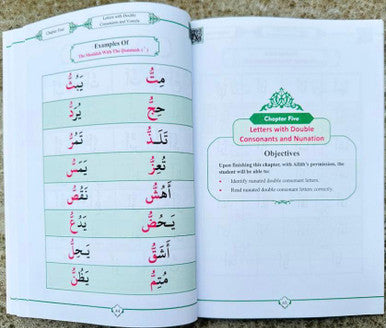 Chapter Five
Letters with Double
Consonants and Vowels
Examples Of
The Shaddah With The Dammah ( ُّ )
مِتُّ يَبُثُّ
حِجُّ يُرَدُّ
تَلَذُّ تَمُرُّ
تُعِزُّ يَمَسُّ
أَهُشُّ نَقُصُّ
يَحُضُّ يَدُعُّ
أَشَقُّ يَحِلُّ
مُتِمُّ يَظُنُّ
64
Chapter Five
Letters with Double
Consonants and Nunation
Objectives
Upon finishing this chapter, with Allâh's permission, the
student will be able to:
• Identify nunated double consonant letters.
• Read nunated double consonant letters correctly.
65